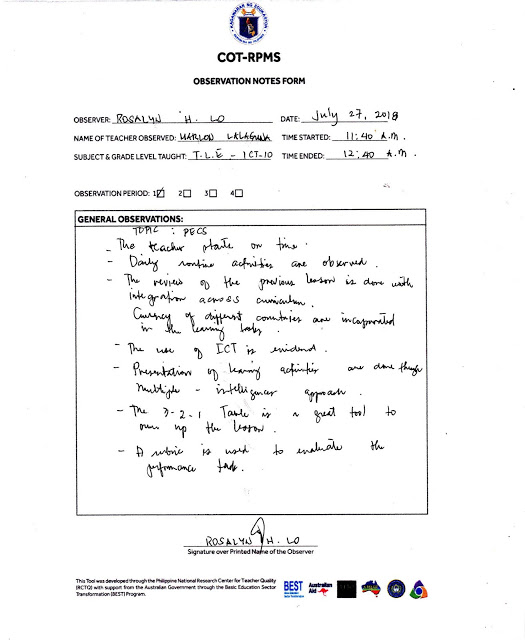 KAGAWARAN NG EDUKASYON
COT-RPMS
OBSERVATION NOTES FORM
OBSERVER: ROSALYN H. LO DATE: July 27, 2018
NAME OF TEACHER OBSERVED: MARLON LALAGUNA TIME STARTED: 11:40 A.M.
SUBJECT & GRADE LEVEL TAUGHT: T.L.E - ICT-10 TIME ENDED: 12:40 A.M.
OBSERVATION PERIOD: 1 2 3 4
GENERAL OBSERVATIONS:
TOPIC : PECS
- The teacher starts on time.
- Daily routine activities are observed.
- The review of the previous lesson is done with
integration across curriculum.
Currency of different countries are incorporated
in the learning tasks.
- The use of ICT is evident.
- Presentation of learning activities are done through
multiple - intelligences approach.
- The 3-2-1 Table is a great tool to
sum up the lesson.
- A rubric is used to evaluate the
performance task.
ROSALYN H. LO
Signature over Printed Name of the Observer
This Tool was developed through the Philippine National Research Center for Teacher Quality
(RCTQ) with support from the Australian Government through the Basic Education Sector
Transformation (BEST) Program.
BEST
Australian
Aid